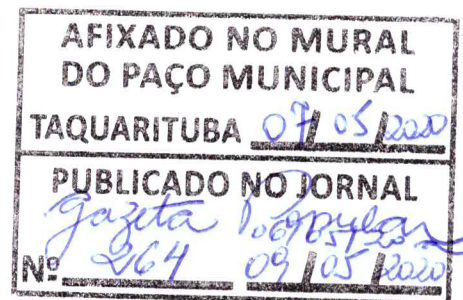 AFIXADO NO MURAL
DO PAÇO MUNICIPAL
TAQUARITUBA 07/05/2020
PUBLICADO NO JORNAL
Gazeta Popular
Nº 264 09/05/2020